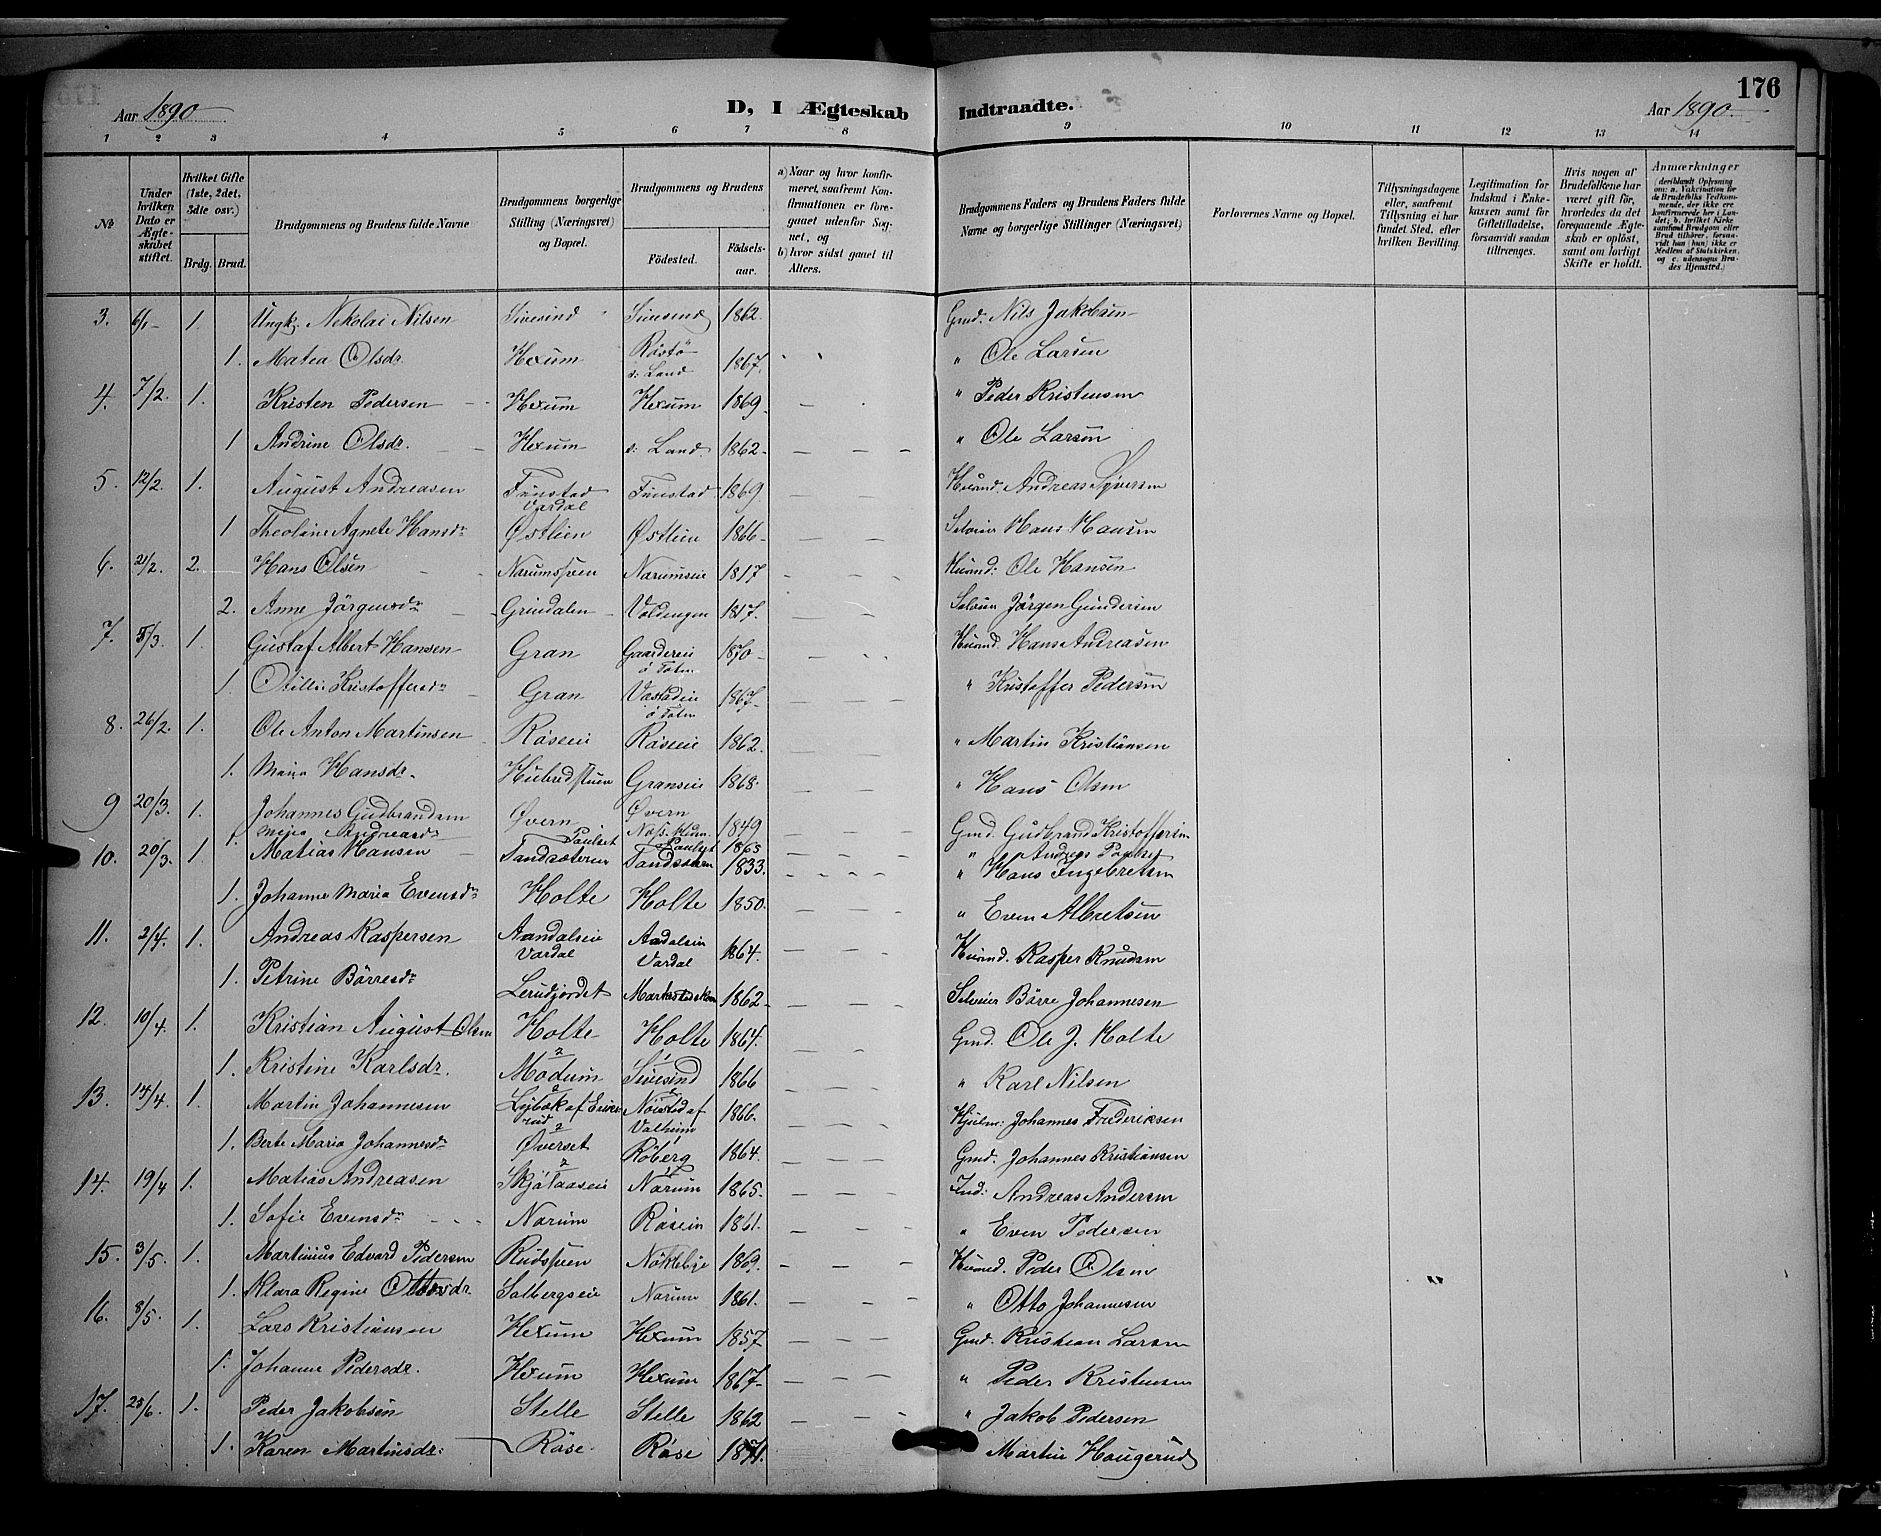 176
Aar 1890
D, I Ægteskab Indtraadte.
Aar 1890.
1 2 3 4 5 6 7 8 9 10 11 12 13 14
№
Under hvilken Dato er Ægteskabet stiftet.
Hvilket Gifte (1ste, 2det, 3die osv.)
Brdg. Brud.
Brudgommens og Brudens fulde Navne
Brudgommens borgerlige Stilling (Næringsvei) og Bopæl.
Brudgommens og Brudens
Fødested.
Fødselsaar.
a) Naar og hvor konfirmeret, saafremt Konfirmationen er foregaaet udenfor Sognet, og
b) hvor sidst gaaet til Alters.
Brudgommens Faders og Brudens Faders fulde Navne og borgerlige Stillinger (Næringsvei)
Forlovernes Navne og Bopæl.
Tillysningsdagene eller, saafremt Tillysning ei har fundet Sted, efter hvilken Bevilling.
Legitimation for Indskud i Enkekassen samt for Giftetilladelse, forsaavidt saadan tiltrænges.
Hvis nogen af Brudefolkene har været gift før, hvorledes da det foregaaende Ægteskab er opløst, samt om lovligt Skifte er holdt.
Anmærkninger
3. 6/1 1. Ungk. Nikolai Nilsen Sivesind Sivesind 1862. Gmd. Nils Jakobsen
1. Matea Olsdr. Hexum Røstø s: Land 1867. " Ole Larsen
4. 7/2. 1. Kristen Pedersen Hexum Hexum 1869. " Peder Kristensen
1 Andrine Olsdr. Hexum s: Land 1862. " Ole Larsen
5. 12/2. 1. August Andreasen Finstad Vardal Finstad 1869. Husmd. Andreas Syversen
1 Theoline Agnete Hansdr Østlien Østlien 1866. Selveier Hans Hansen
6. 21/2. 2. Hans Olsen Narumsven Narumseie 1817 Husmd: Ole Hansen
2. Anne Jörgensdr Grindalen Voldengen 1817. Selveier Jörgen Gundersen
7. 5/3. 1. Gustaf Albert Hansen Gran Gaardereie ö Toten 1870 Husmd. Hans Andreasen
1. Otillie Kristoffersdr Gran ö Toten 1867 " Kristoffer Pedersen
8. 26/2. 1. Ole Anton Martinsen Röseie Röseie 1862. " Martin Kristiansen
1. Maria Hansdr. Granseie 1868. " Hans Olsen
9 20/3. 1. Johannes Gudbrandsen Øvern Øvern 1849 Gmd. Gudbrand Kristoffersen
1. Andreasdr Paulset Paulset 1865 " Andreas Paulset
10. 20/3. 1. Matias Hansen Tandsæteren Tandsæteren 1833. " Hans Ingebretsen
1. Johanne Maria Evensdr Holte Holte 1850. " Even Albretsen
11. 2/4. 1. Andreas Kaspersen Aandalseie Vardal Aadalseie Vardal 1864. Husmd. Kasper Knudsen
1. Petrine Börresdr Lerudjordet 1862 Selveier Börre Johannesen
12. 10/4 1. Kristian August Olsen Holte Holte 1864. Gmd. Ole J. Holte
1. Kristine Karlsdr. Modum Sivesind 1866 " Karl Nilsen
13. 14/4. 1. Martin Johannesen Lybæk af Eriksrud Nöisted af Valheim 1866. Johannes Frederiksen
1. Berte Maria Johannesdr Øverset Röberg 1864. Gmd. Johannes Kristiansen
14. 19/4 1. Matias Andreasen Skjölaaseie Narum 1865. Ind: Andreas Andersen
1. Sofie Evensdr Narum Röseie 1861. " Even Pedersen
15. 3/5. 1. Martinius Edvard Pedersen Rudsven Nöklebye 1869. Husmd. Peder Olsen
1. Klara Regine Ottosdr Solbergseie Narum 1861. " Otto Johannesen
16. 8/5. 1. Lars Kristiansen Hexum Hexum 1857 Gmd. Kristian Larsen
1. Johanne Pedersdr. Hexum Hexum 1867 " Peder Kristensen
17. 25/6. 1. Peder Jakobsen Stelle Stelle 1862 " Jakob Pedersen
1. Karen Martinsdr: Röse Röse 1871. Martin Haugerud